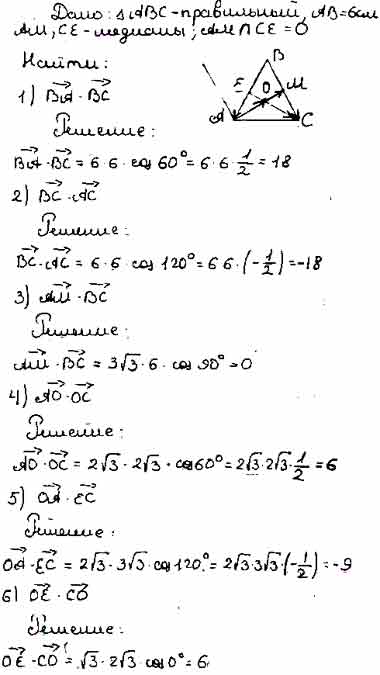 Дано: △ABC-правильный, AB=6см
AM, CE-медианы; AM∩CE=O
Найти:
B
E O M
A C
1) BA · BC
Решение:
BA · BC = 6 · 6 · cos 60° = 6 · 6 · 1/2 = 18
2) BC · AC
Решение:
BC · AC = 6 · 6 · cos 120° = 6 6 · (-1/2) = -18
3) AM · BC
Решение:
AM · BC = 3√3 · 6 · cos 90° = 0
4) AO · OC
Решение:
AO · OC = 2√3 · 2√3 · cos60° = 2√3 · 2√3 · 1/2 = 6
5) OA · EC
Решение:
OA · EC = 2√3 · 3√3 · cos 120° = 2√3 · 3√3 · (-1/2) = -9
6) OE · CO
Решение:
OE · CO = √3 · 2√3 · cos 0° = 6